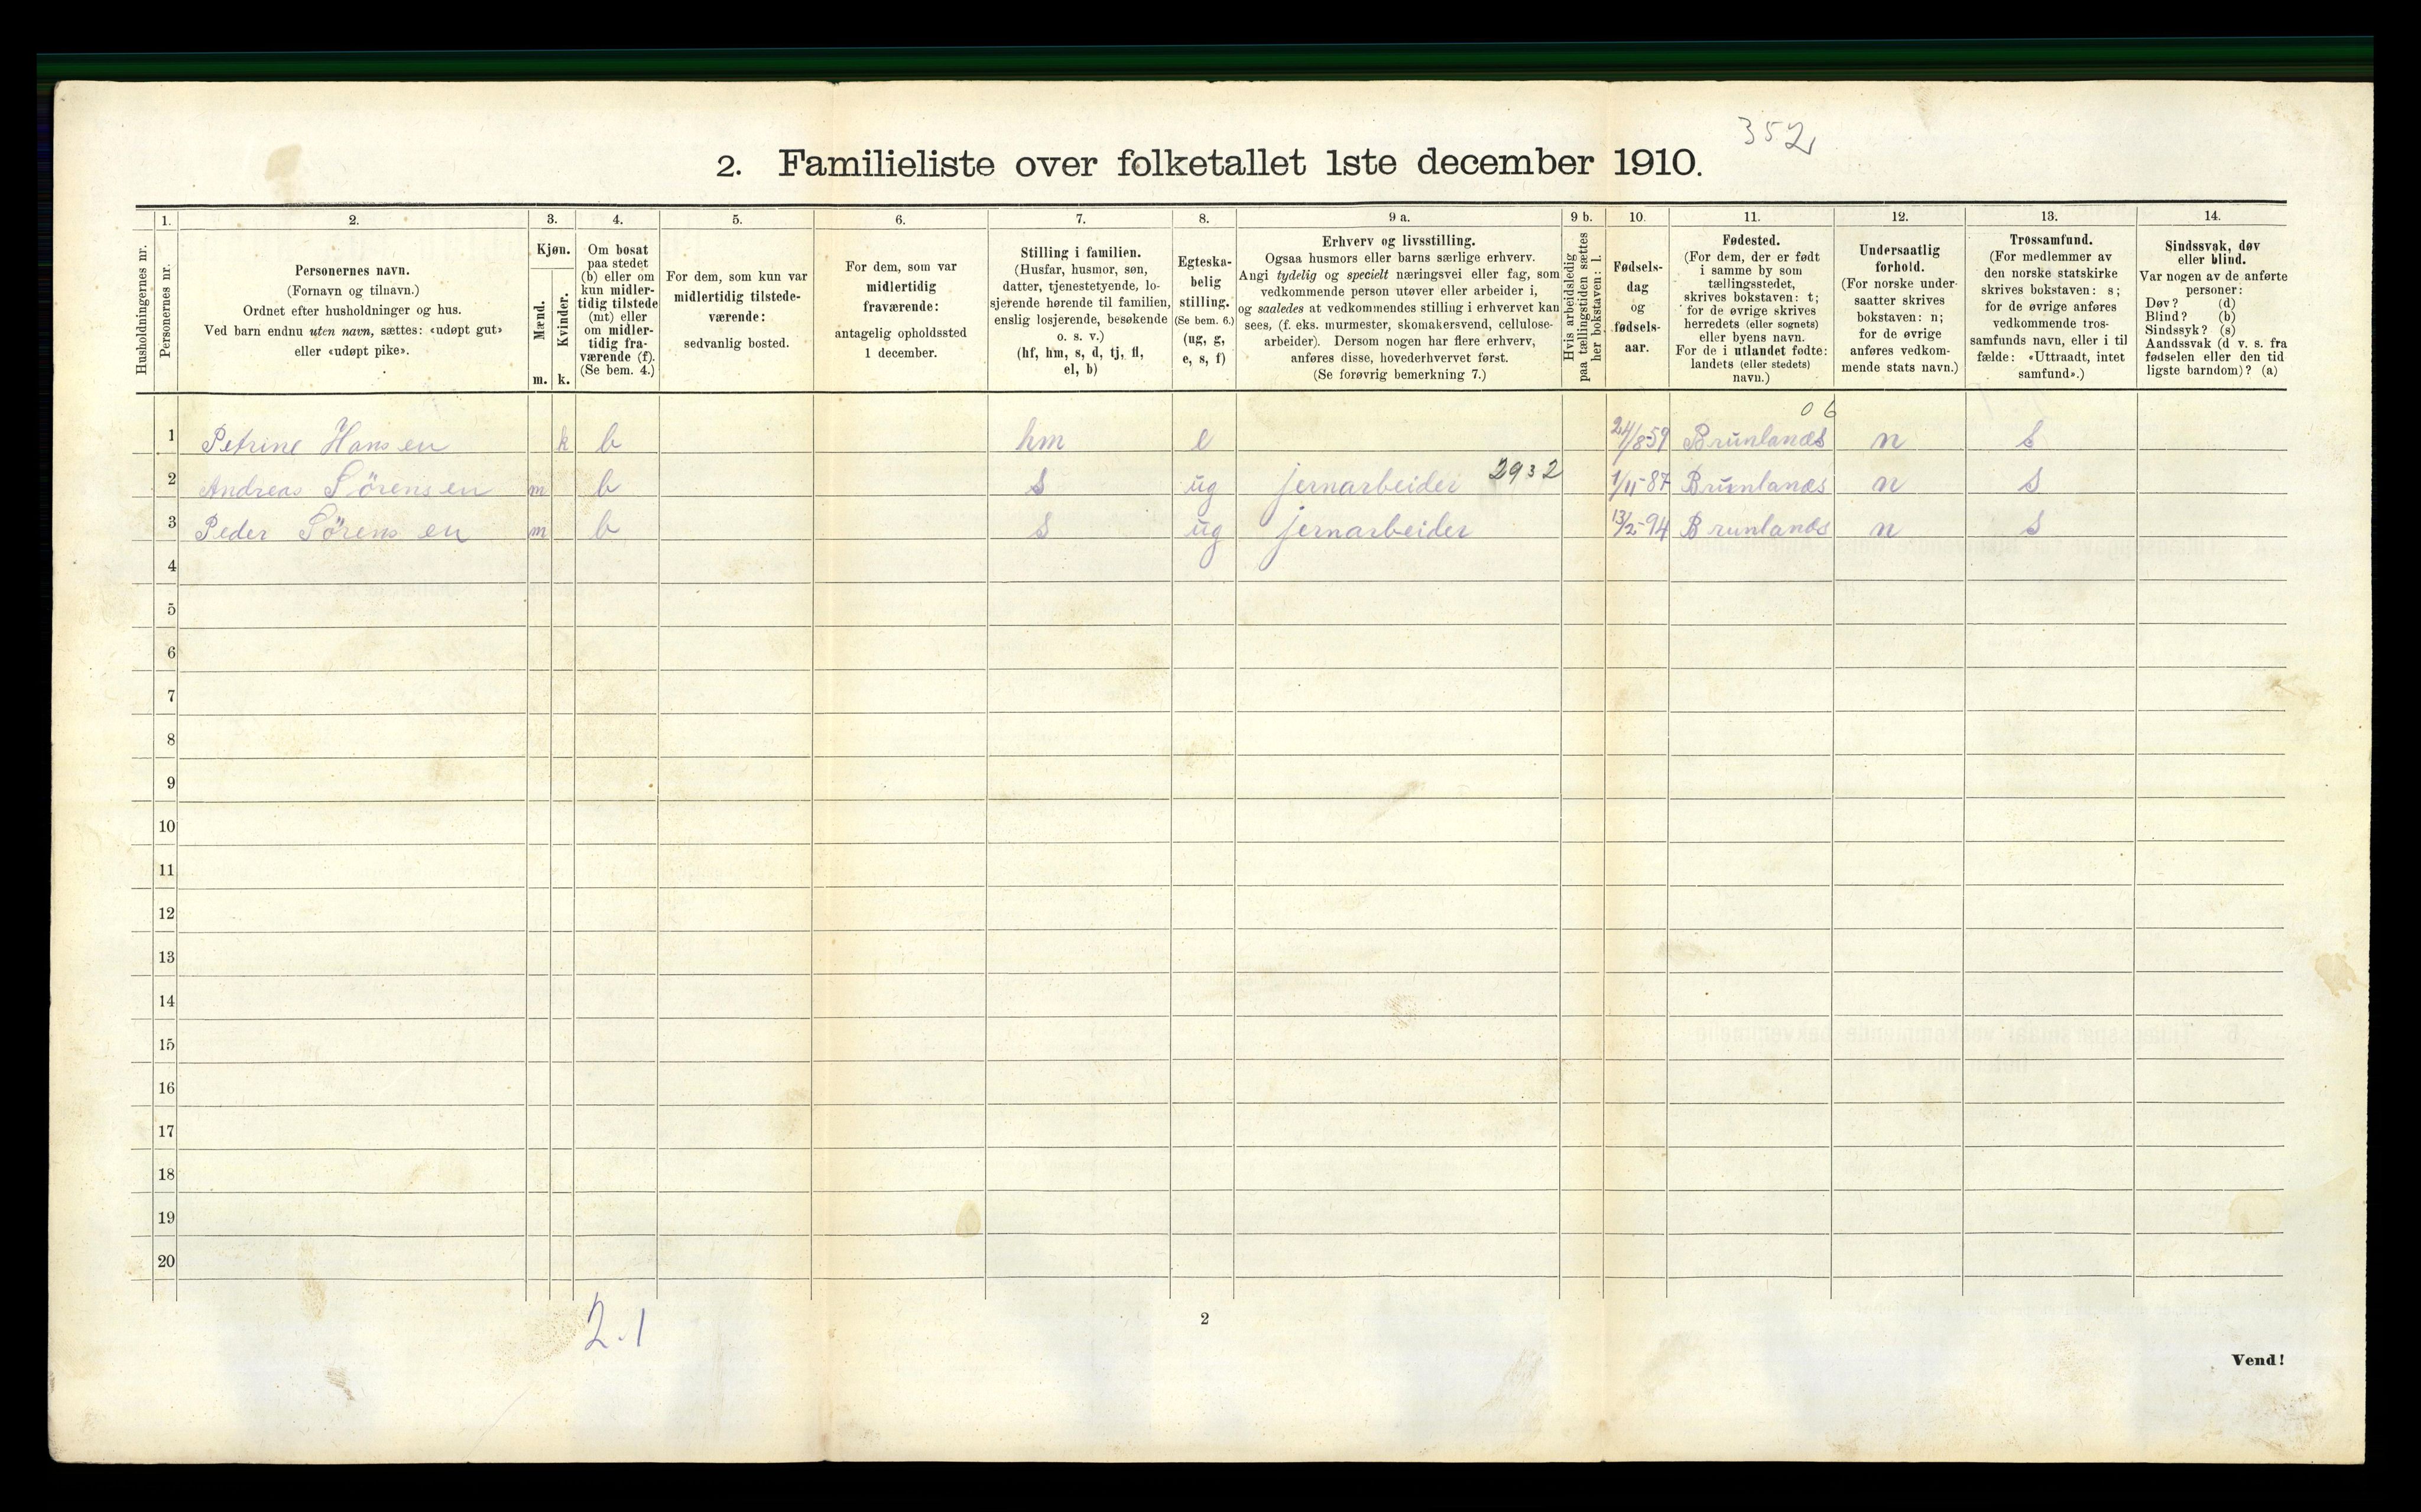 352
2. Familieliste over folketallet 1ste december 1910.
Husholdningernes nr.
1.
Personernes nr.
2.
Personernes navn.
(Fornavn og tilnavn.)
Ordnet efter husholdninger og hus.
Ved barn endnu uten navn, sættes: «udøpt gut»
eller «udøpt pike».
3.
Kjøn.
Mænd.
m.
Kvinder.
k.
4.
Om bosat
paa stedet
(b) eller om
kun midler-
tidig tilstede
(mt) eller
om midler-
tidig fra-
værende (f).
(Se bem. 4.)
5.
For dem, som kun var
midlertidig tilstede-
værende:
sedvanlig bosted.
6.
For dem, som var
midlertidig
fraværende:
antagelig opholdssted
1 december.
7.
Stilling i familien.
(Husfar, husmor, søn,
datter, tjenestetyende, lo-
sjerende hørende til familien,
enslig losjerende, besøkende
o. s. v.)
(hf, hm, s, d, tj, fl,
el, b)
8.
Egteska-
belig
stilling.
(Se bem. 6.)
(ug, g,
e, s, f)
9 a.
Erhverv og livsstilling.
Ogsaa husmors eller barns særlige erhverv.
Angi tydelig og specielt næringsvei eller fag, som
vedkommende person utøver eller arbeider i,
og saaledes at vedkommendes stilling i erhvervet kan
sees, (f. eks. murmester, skomakersvend, cellulose-
arbeider). Dersom nogen har flere erhverv,
anføres disse, hovederhvervet først.
(Se forøvrig bemerkning 7.)
9 b.
Hvis arbeidsledig
paa tællingstiden sættes
her bokstaven: l.
10.
Fødsels-
dag
og
fødsels-
aar.
11.
Fødested.
(For dem, der er født
i samme by som
tællingsstedet,
skrives bokstaven: t;
for de øvrige skrives
herredets (eller sognets)
eller byens navn.
For de i utlandet fødte:
landets (eller stedets)
navn.)
12.
Undersaatlig
forhold.
(For norske under-
saatter skrives
bokstaven: n;
for de øvrige
anføres vedkom-
mende stats navn.)
13.
Trossamfund.
(For medlemmer av
den norske statskirke
skrives bokstaven: s;
for de øvrige anføres
vedkommende tros-
samfunds navn, eller i til
fælde: «Uttraadt, intet
samfund».)
14.
Sindssvak, døv
eller blind.
Var nogen av de anførte
personer:
Døv? (d)
Blind? (b)
Sindssyk? (s)
Aandssvak (d v. s. fra
fødselen eller den tid
ligste barndom)? (a)
06
1 Petrine Hansen k b hm e 24/8-59 Brunlanæs n s
2 Andreas Sörensen m b s ug jernarbeider 2932 1/11-87 Brunlanæs n s
3 Peder Sörensen m b s ug jernarbeider 13/2-94 Brunlanæs n s
4
5
6
7
8
9
10
11
12
13
14
15
16
17
18
19
20
2.1
2
Vend!